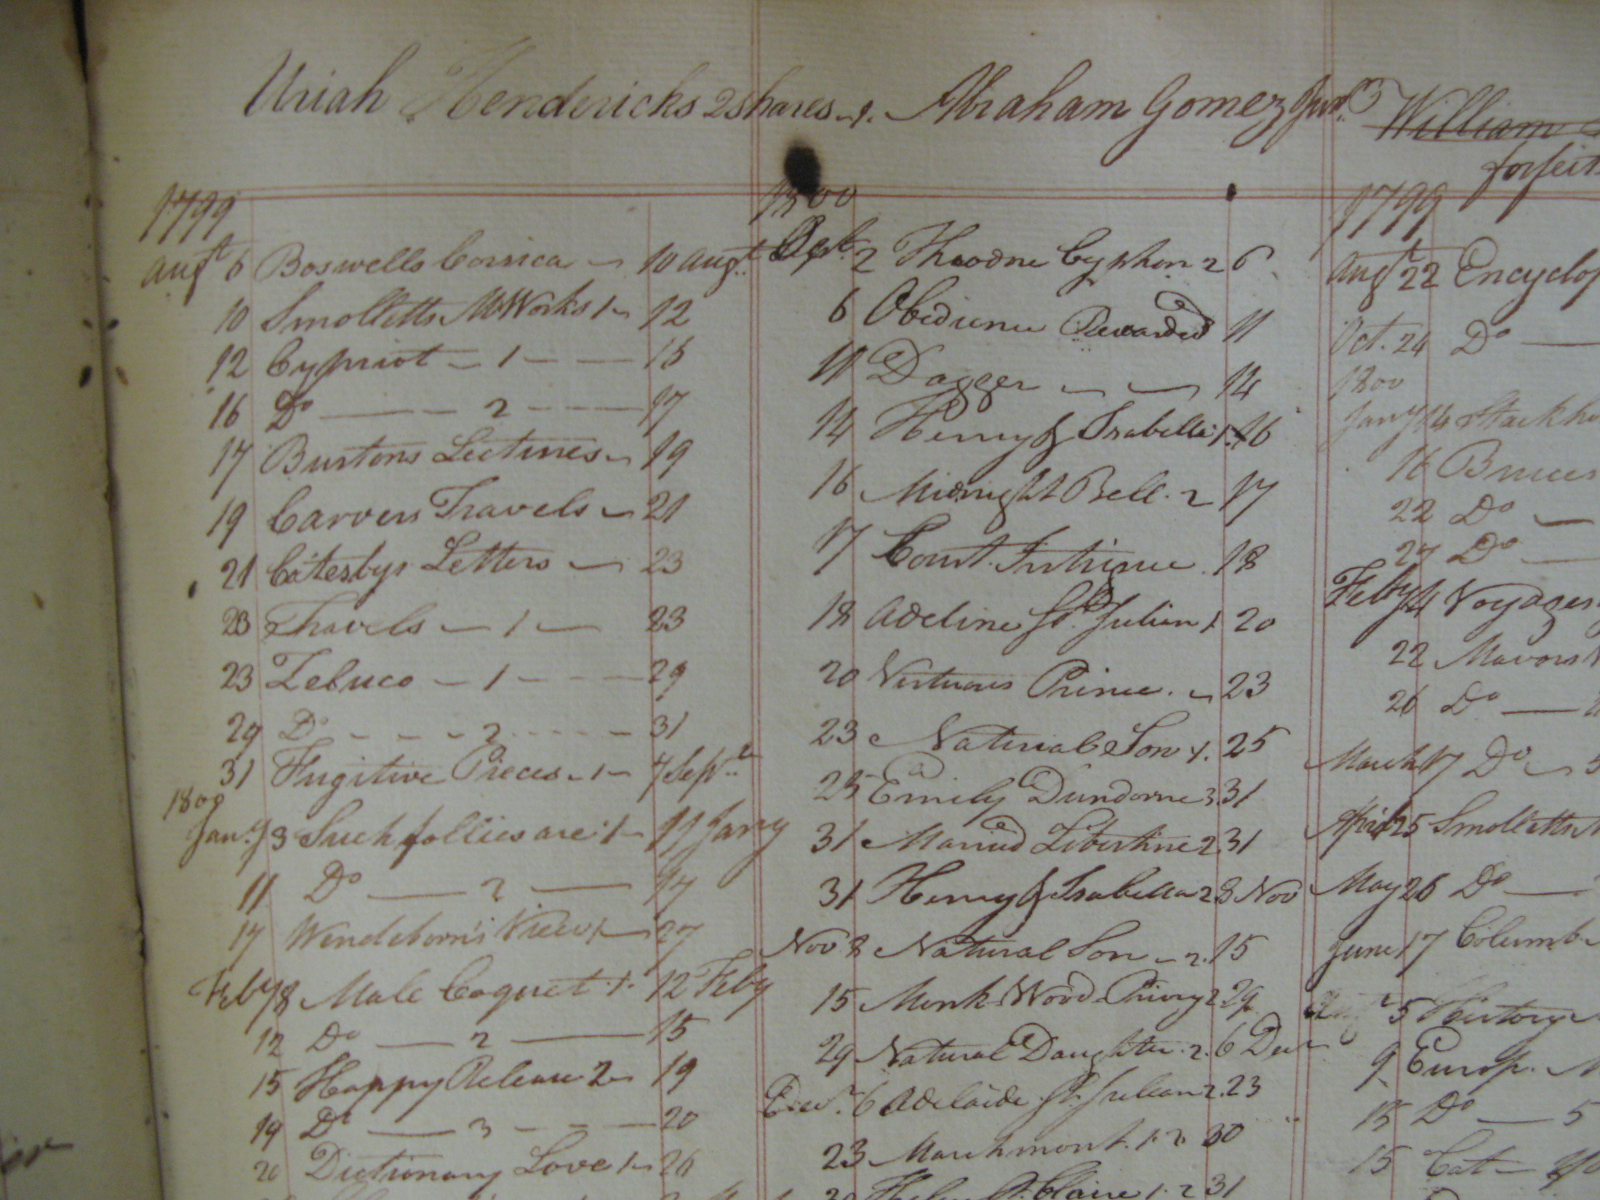 Uriah Hendericks 2 shares
1799
Augt 6 Boswells Corsica 10 Augt
10 Smolletts Works 1 12
12 Cypriot 1 16
16 Do 2 17
17 Burtons Lectures 19
19 Carvers Travels 21
21 Catesbys Letters 23
23 Travels 1 23
23 Zeluco 1 29
29 Do 2 31
31 Fugitive Pieces 1 4 Sept
1800
Jany 3 Such follies are 1 11 Jany
11 Do 2 17
17 Wendeborn's View 1 27
Feby 8 Male Coquet 1 12 Feby
12 Do 2 15
15 Happy Release 2 19
19 Do 3 20
20 Dictionary Love 1 26
Abraham Gomez Junr
1800
2 Theodore Cyphon 2 6
6 Obedience Rewarded 11
11 Dagger 14
14 Henry & Isabella 1 16
16 Midnight Bell 2 17
17 Court Intrigue 18
18 Adeline St. Julian 1 20
20 Virtuous Prince 23
23 Natural Son 1 25
25 Emily Dundorne 3 31
31 Married Libertine 2 31
31 Henry & Isabella 2 8 Nov
Nov 8 Natural Son 2 15
15 Monk Wood Priory 2 29
29 Natural Daughter 2 6 Decr
Decr 6 Adelaide St. Julian 2 23
23 Marchmont 1.2 30
St. Claire 1.2 31
William
forfeit
1799
Augt 22 Encyclop
Oct. 24 Do
1800
Jany 14 Stackho
16 Bruces
22 Do
27 Do
Feby 4 Voyages
22 Mavors
26 Do
March 17 Do 5
April 25 Smolletts
May 26 Do
June 17 Columb
5 History
9 Europ. M
15 Do 5
15 Cat